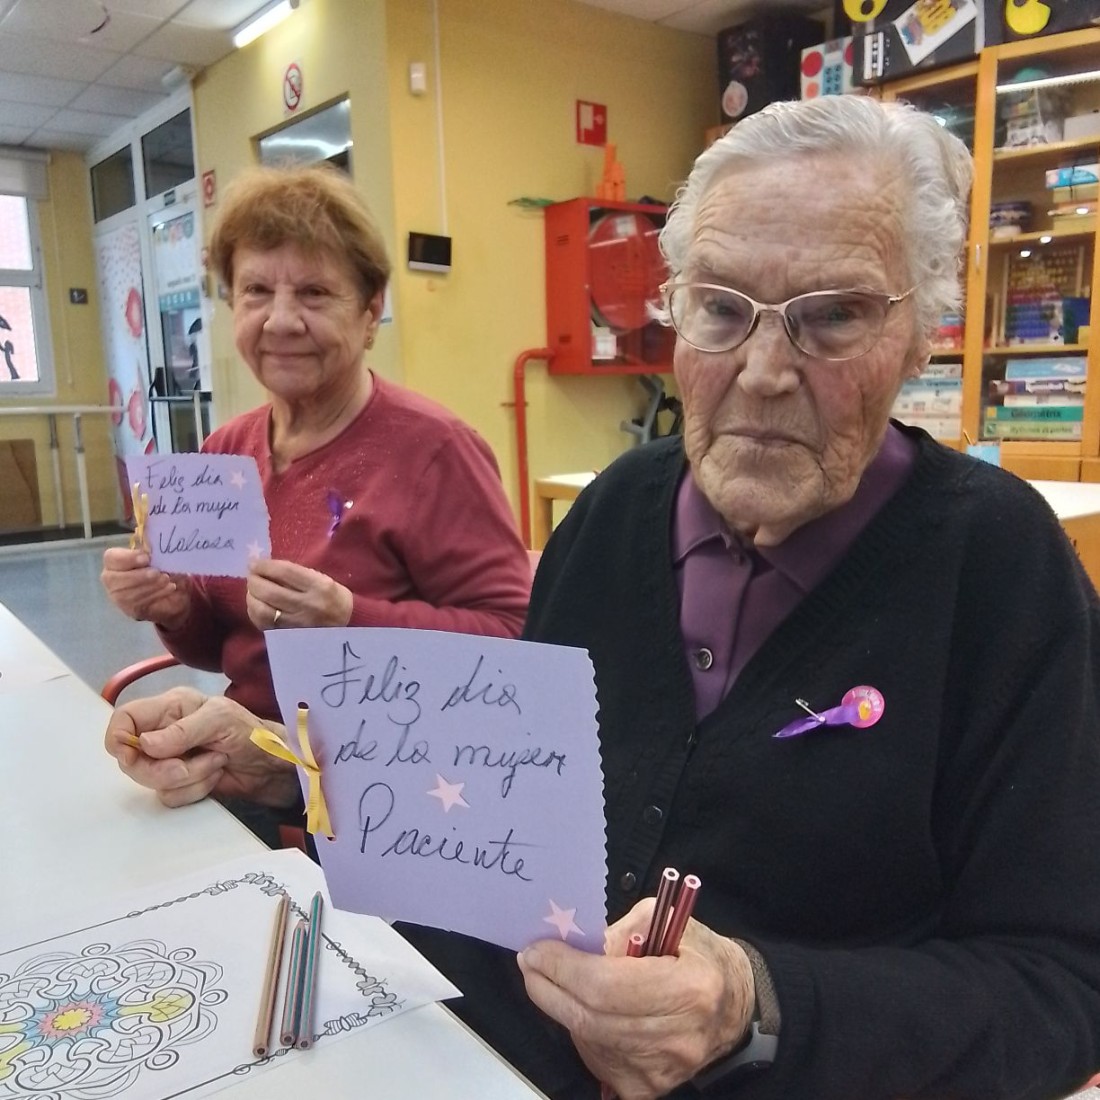 Feliz dia
de la mujer
Valiosa
Feliz dia
de la mujer
Paciente
Geometrix